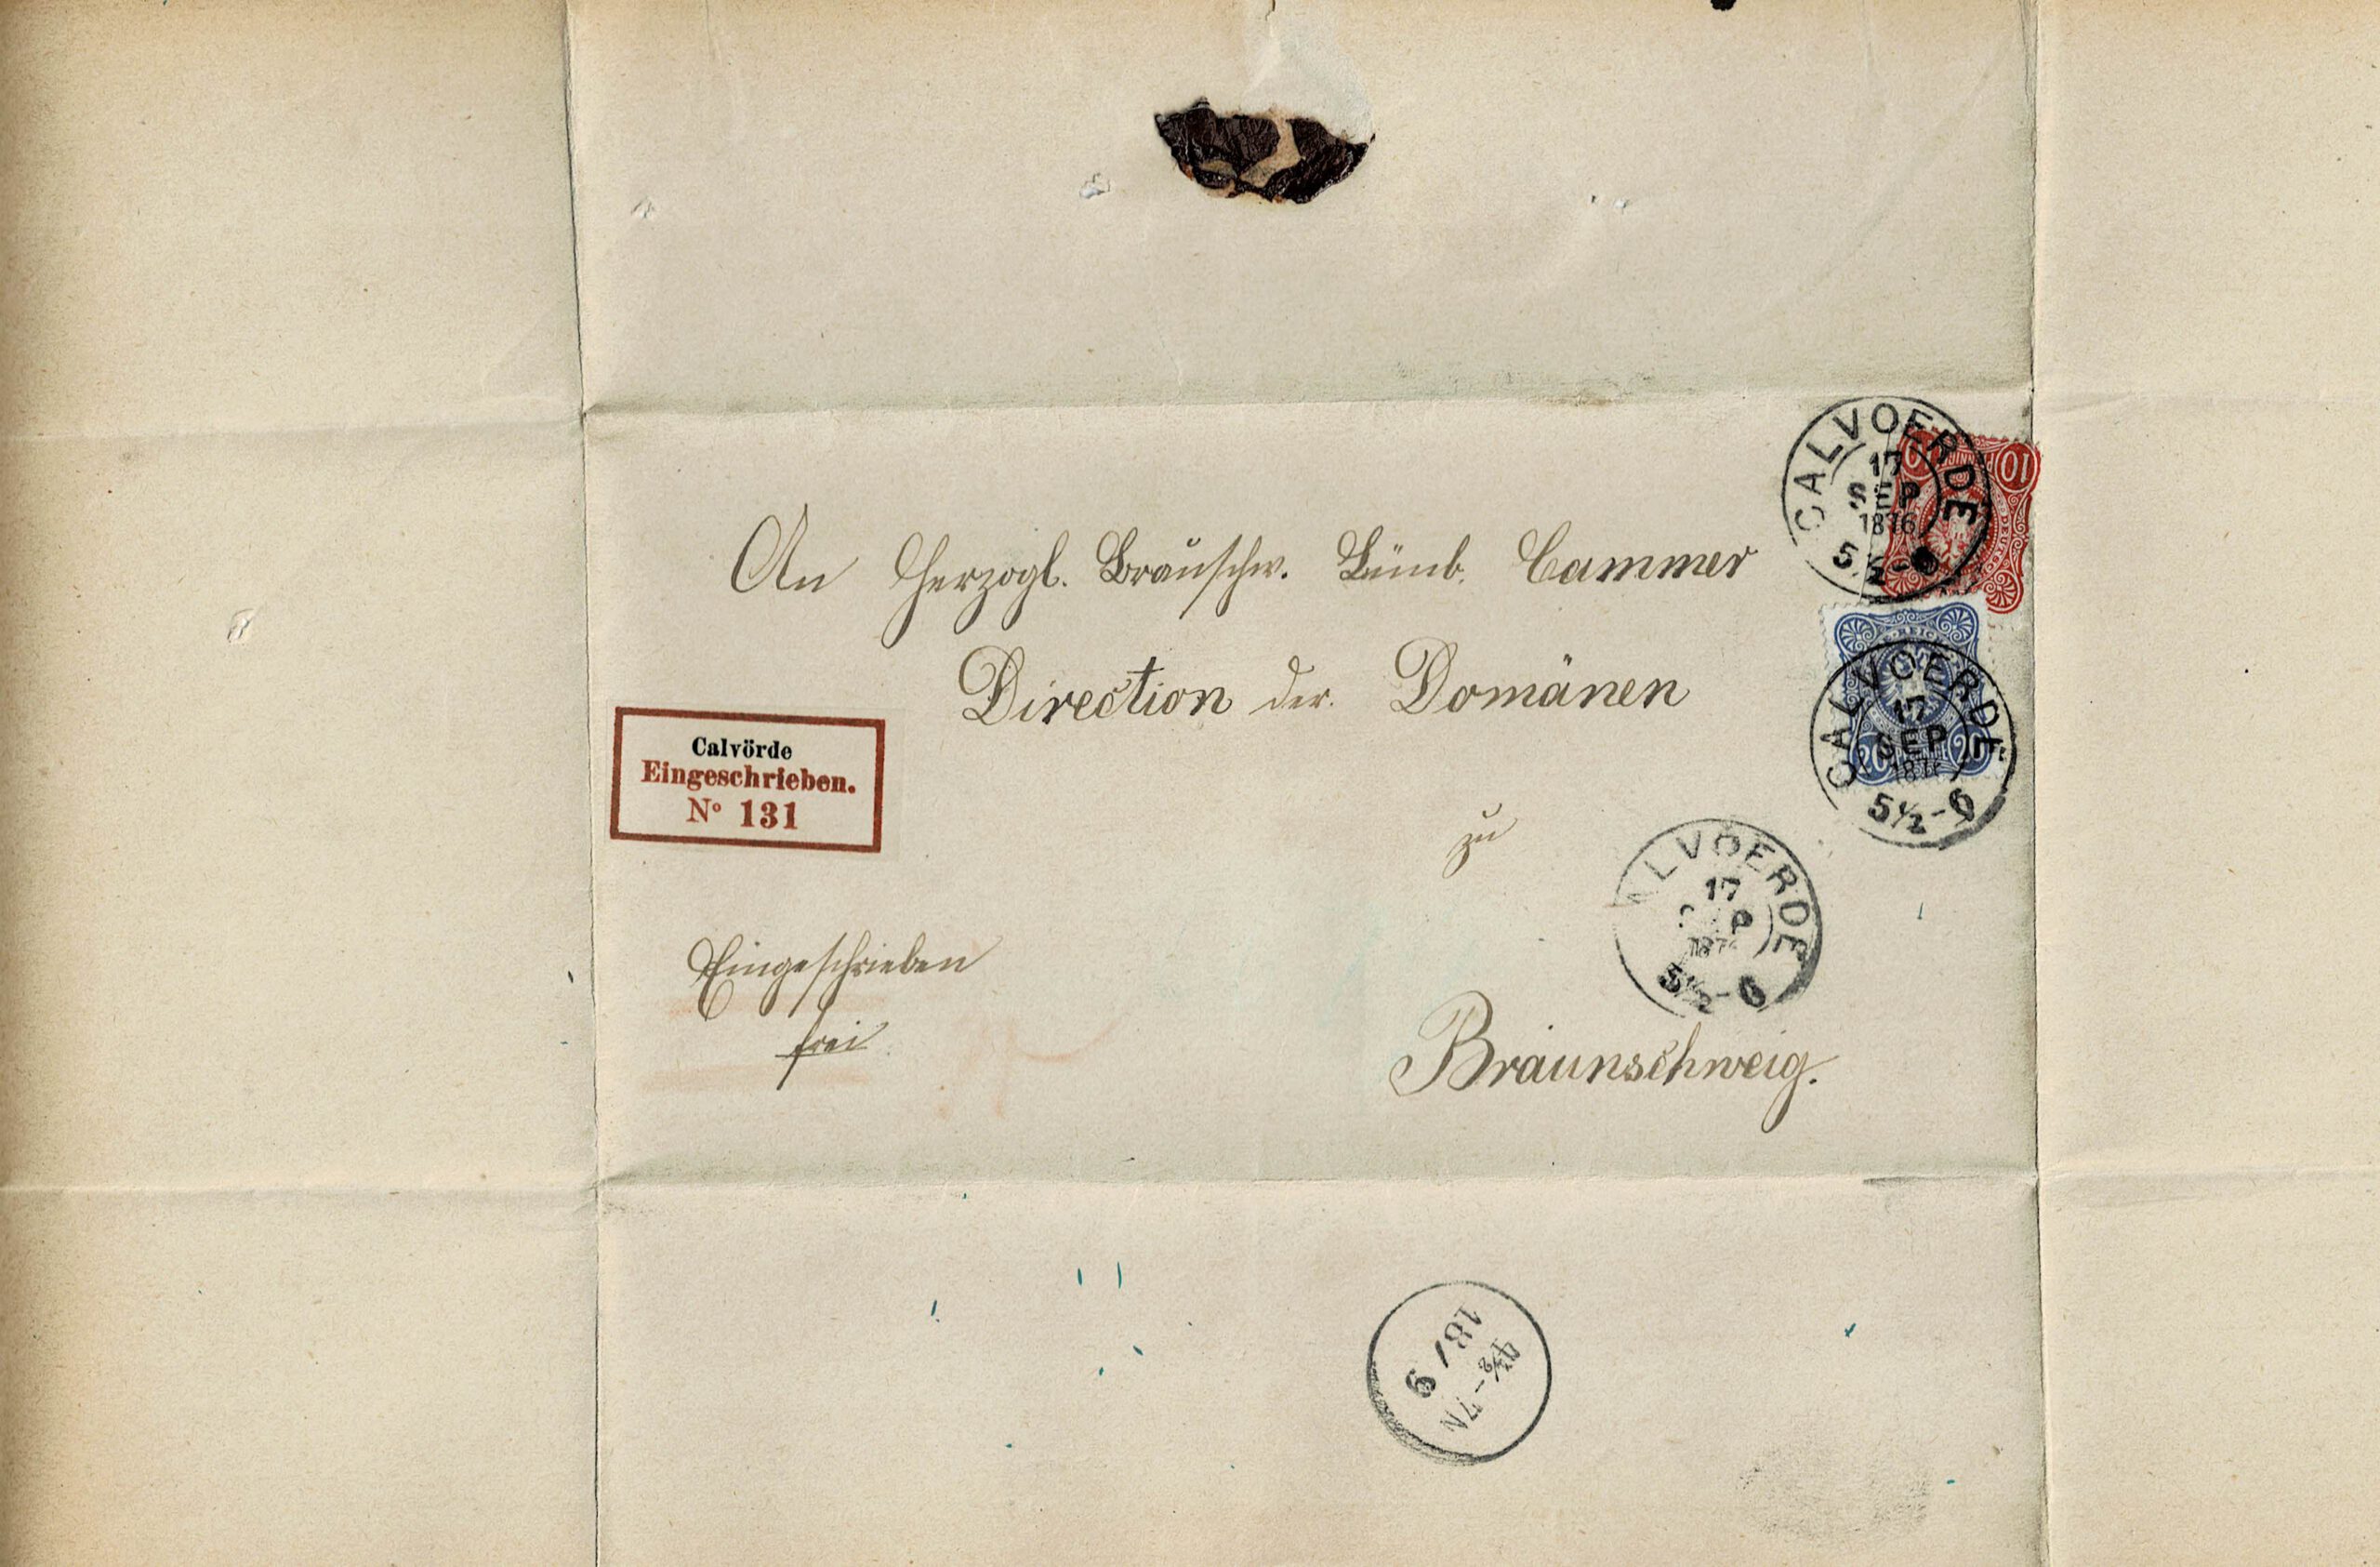 CALVOERDE
17
SEP
1876
5½-6
10
An Herzogl. Braunschw. Lünb. Cammer
Direction der Domänen
CALVOERDE
17
SEP
1876
5½-6
20
20
Calvörde
Eingeschrieben.
Nº 131
zu
ALVOERDE
17
5½-6
Eingeschrieben
frei
Braunschweig.
18/9